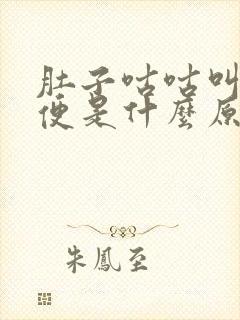 肚子咕咕叫
便是什麼原
朱鳳至